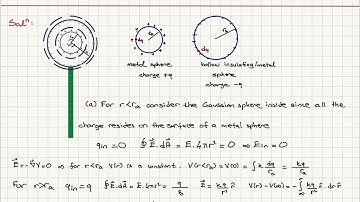 Solⁿ:
dq
metal sphere
charge +q
dq
hollow insulating/metal
sphere
charge -q
(a) For r<ra consider the Gaussian sphere inside since all the
charge resides on the surface of a metal sphere
qin=0 ∮E⃗.dA⃗ = E.4πr²=0 ⇒ Ein=0
E⃗=-∇⃗V=0 ⇒ for r<ra V(r) is a constant. V(r<ra)=V(0)=∫k dq/ra = kq/ra
For r>ra qin=q ∮E⃗.dA⃗=E.4πr²=q/ε₀ E⃗=kq/r² r̂ V(r)-V(∞)=-∫kq/r² r̂.dr r̂